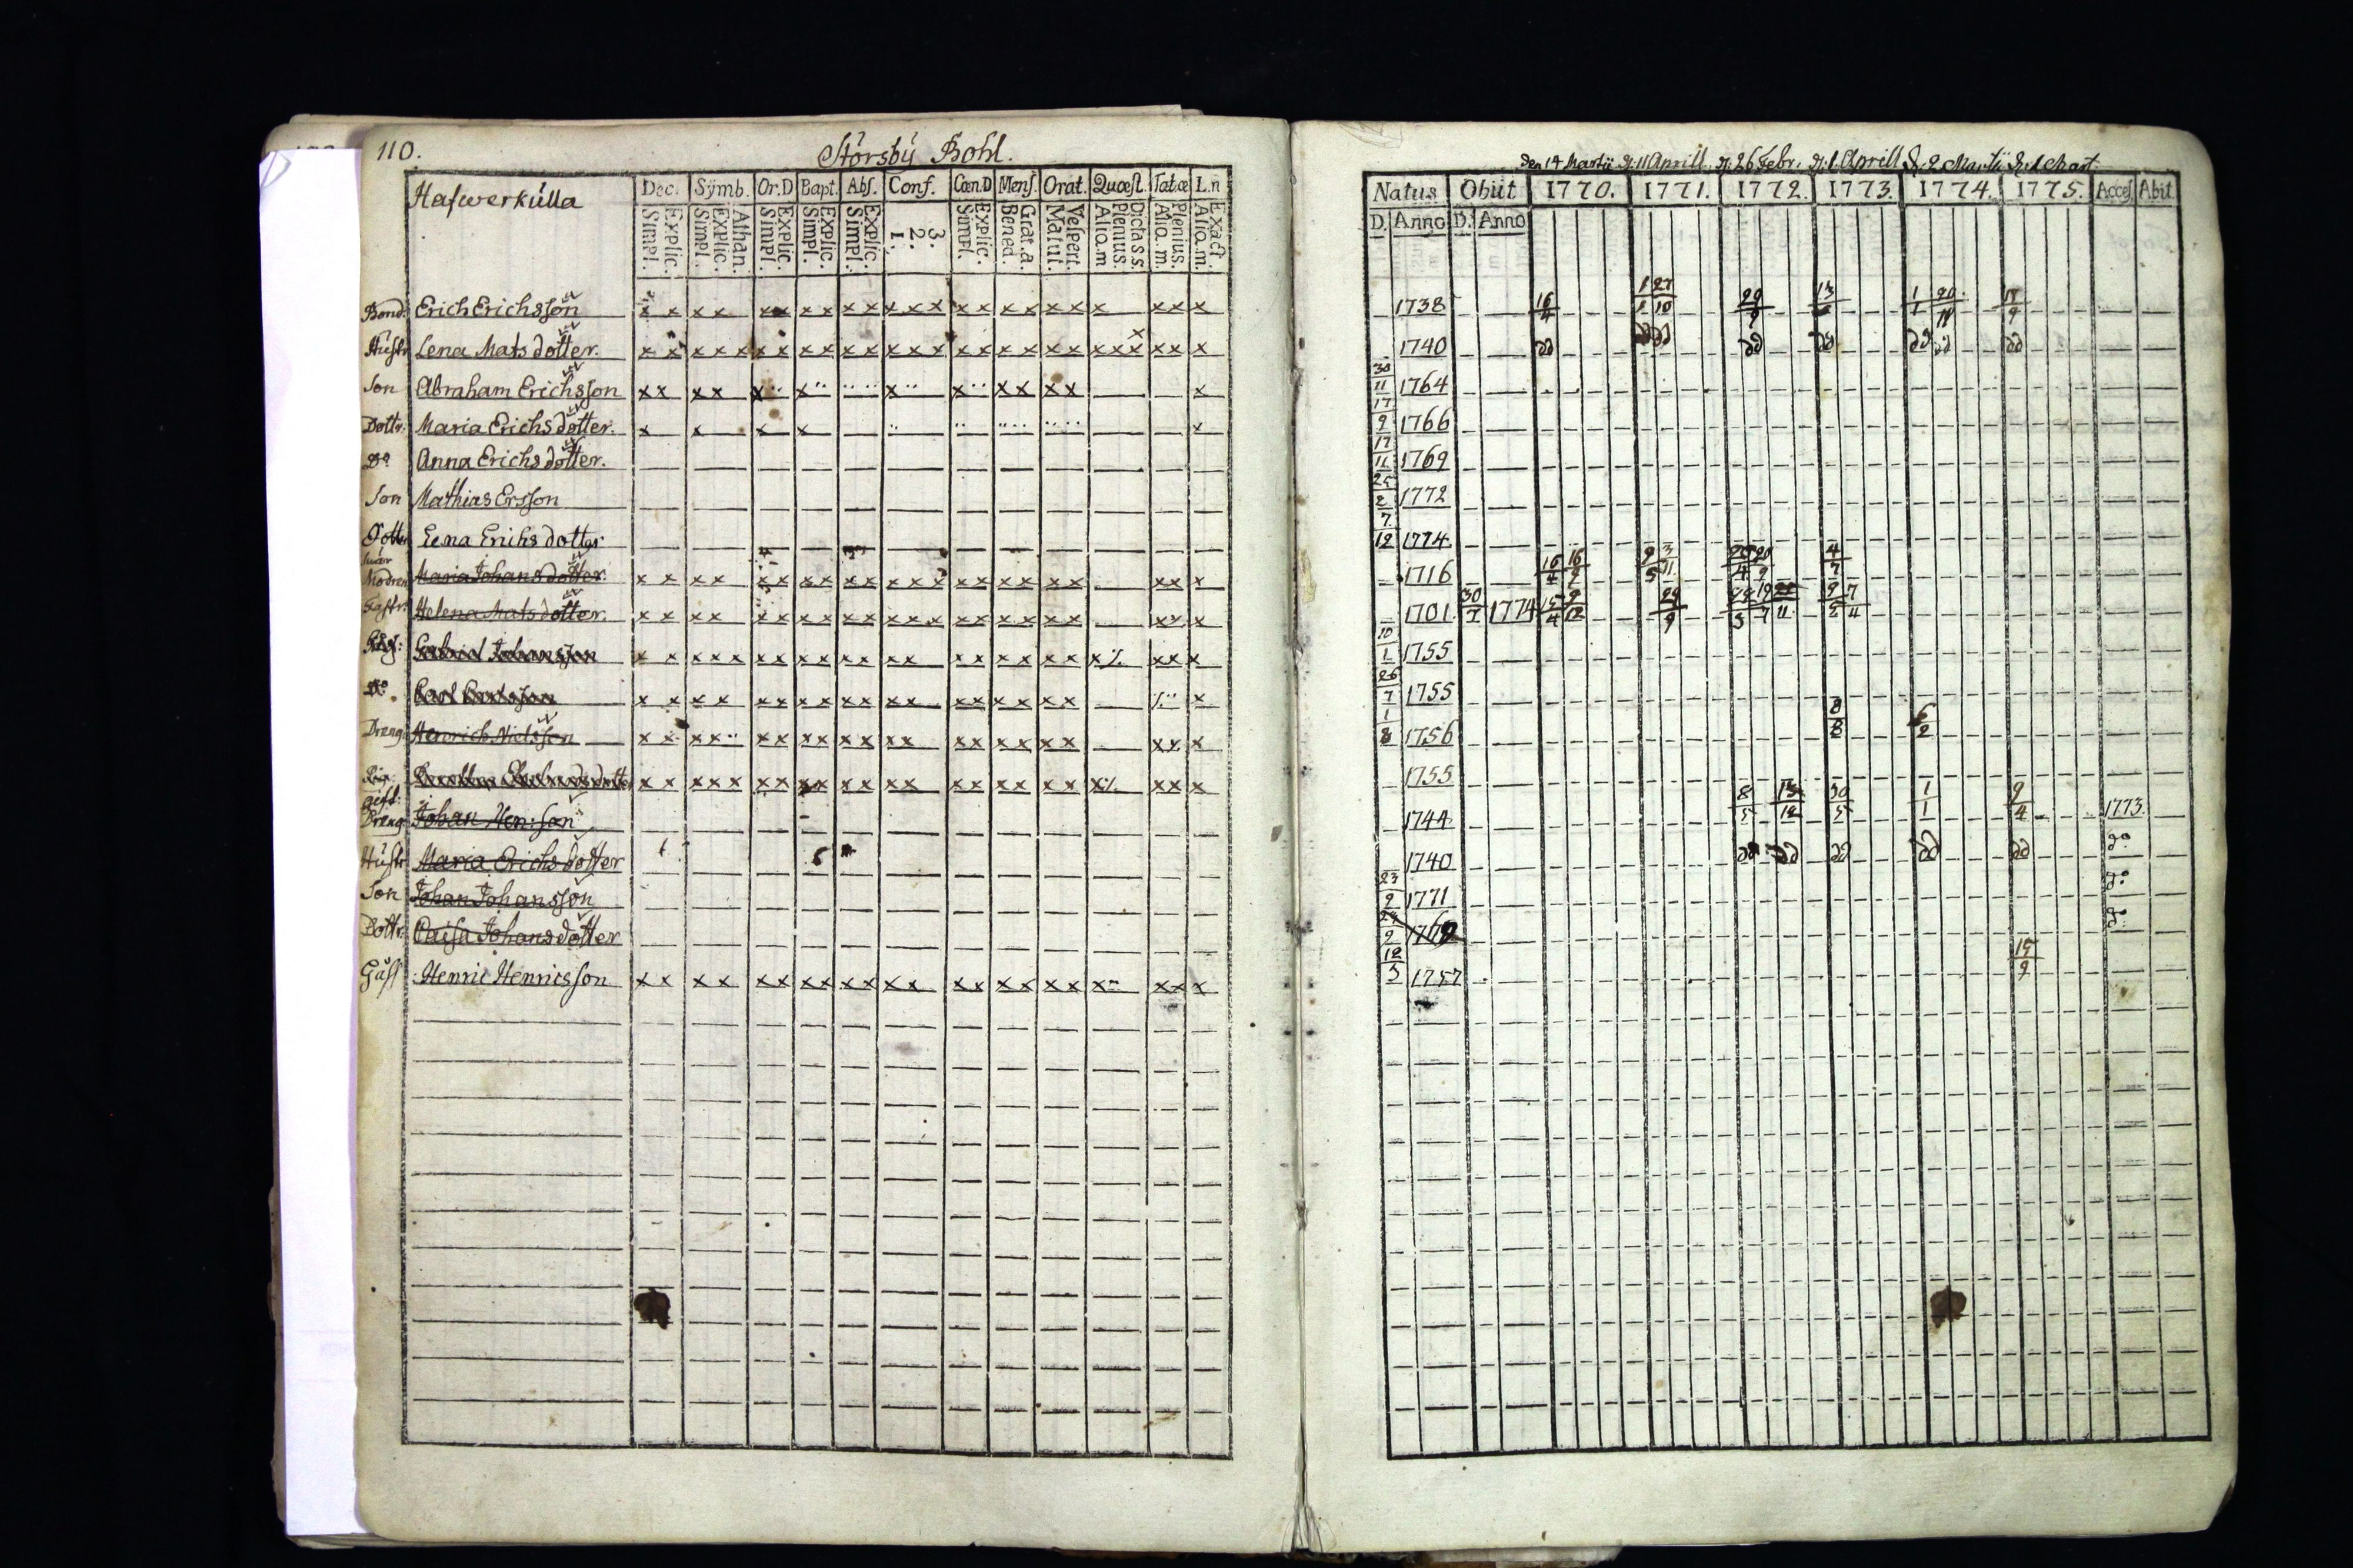 110.
Störsbÿ Bohl.
Hafwerkulla
Dec. Sÿmb. Or.D Bapt. Abs. Conf. Cœn.D Mens. Orat. Quœst. Tat.œ L.n
Simpl. Explic. Simpl. Explic. Athan. Simpl. Explic. Simpl. Explic. Simpl. Explic. 1. 2. 3. Simpl. Explic. Bened. Grat.a Matut. Vespert. Alio.m Plenius. Dicta s s. Alio.m. Plenius. Alio.m. Exact.
Bond. Erich Erichsson x x x x x x x x x x x x x x x x x x x x x x x x
Hustr Lena Mats dotter. x x x x x x x x x x x x x x x x x x x x x x x x x x x
Son Abraham Erichsson x x x x x x x x x x x x x
Dottr. Maria Erichs dotter. x x x x x
Do Anna Erichs dotter.
Son Mathias Ersson
Dotter Lena Erichs dotter
Swär Modren Maria Johans dotter. x x x x x x x x x x x x x x x x x x x x x x
Helena Mats dotter. x x x x x x x x x x x x x x x x x x x x x x
Gabriel Johansson x x x x x x x x x x x x x x x x x x x x x x x
Do. Carl Carlsson x x x x x x x x x x x x x x x x x x x
Dreng Henrich Nielsson x x x x x x x x x x x x x x x x x x x x x
x x x x x x x x x x x x x x x x x x x x x x x
Dreng Johan Hen:son
Hustr Maria Erichs dotter
Son Johan Johansson
Dottr. Caisa Johans dotter
Henric Henricsson x x x x x x x x x x x x x x x x x x x x x x
Den 14 Martii D. 11 Aprill. D. 26 Febr. D. 1. Aprill D. 2 Martii D. 1 Mart.
Natus Obiit 1770. 1771. 1772. 1773. 1774. 1775. Acces. Abit.
D. Anno D. Anno
1738 16/4 1/1 27/10 29/9 1/1 20/11
1740 dd dd dd dd dd dd dd
30/11 1764
17/9 1766
17/11 1769
25/2 1772
7/12 1774
1716 16/4 16/9 3/11 4/7
1701 30/7 1774 15/4 9/12 29/9
10/1 1755
26/7 1755
1/8 1756 8/8 6/2
1755
1744 8/5 13/12 30/5 1/1 9/4 1773.
1740 dd dd dd dd dd do
23/9 1771 do
1769 do
12/3 1757 15/9